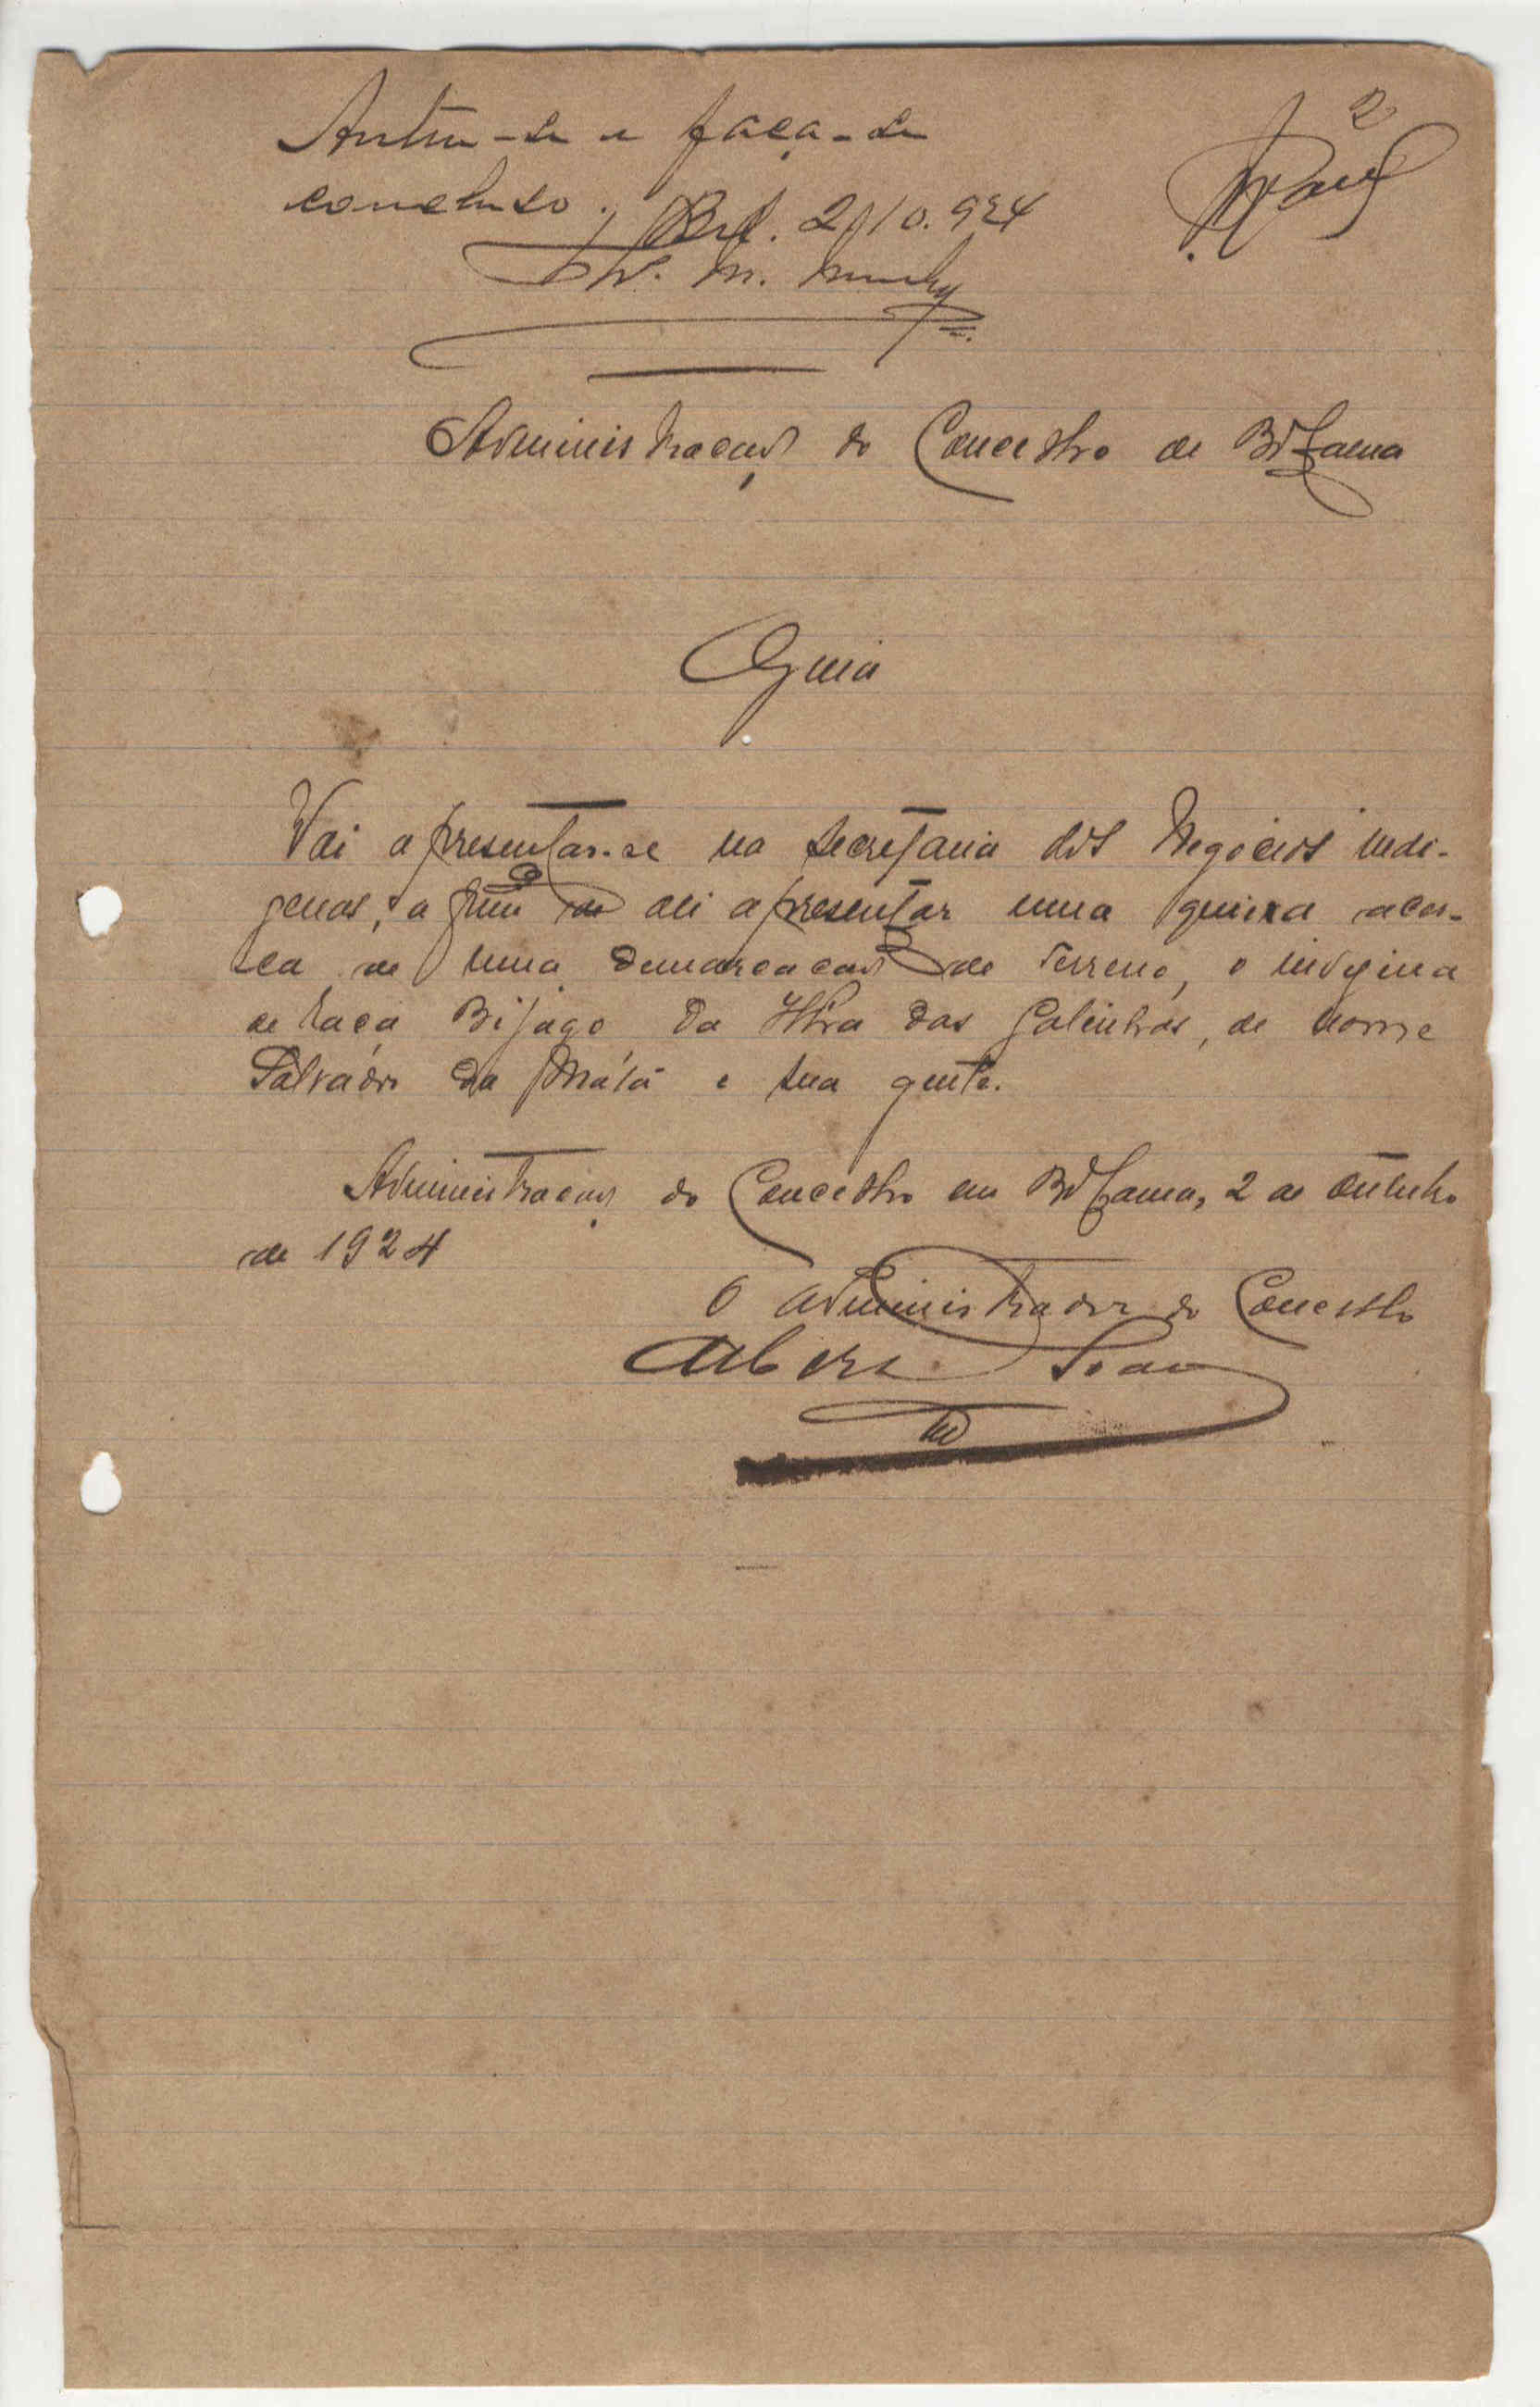 2
Autue-se e faça-se
concluso. Bol. 2/10.924
Administração do Concelho de Bolama
Guia
Vai apresentar-se na Secretaria dos Negocios indi-
genas, a fim de ali apresentar uma queixa acer-
ca de uma demarcação de terreno, o indigina
de raça Bijago da Ilha das Galinhas, de nome
Salvador da Máta e sua gente.
Administração do Concelho em Bolama, 2 de Outubro
de 1924
O Administrador do Concelho